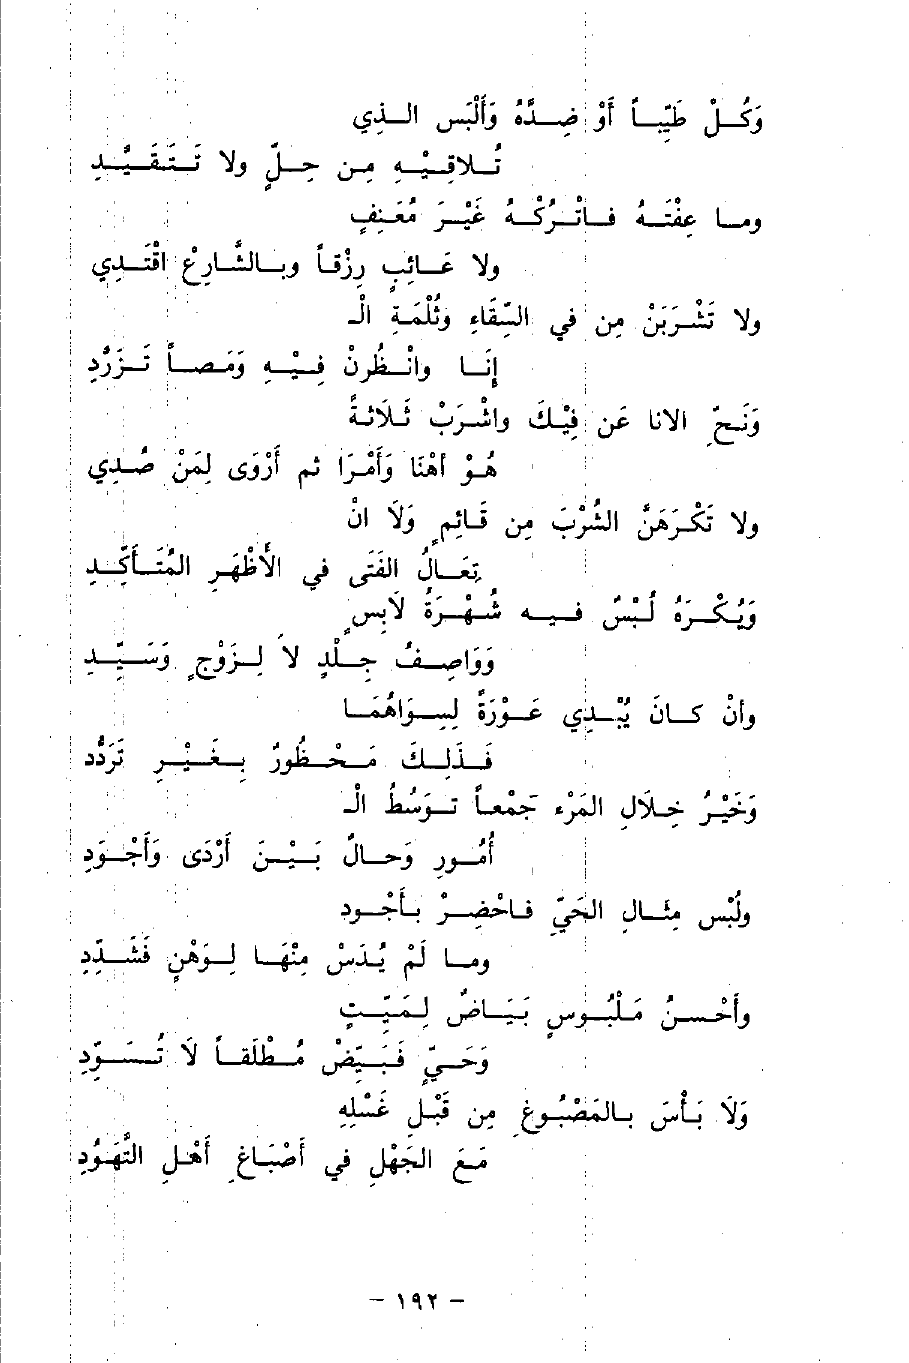 وَكُلْ طَيِّباً أَوْ ضِدَّهُ وَألْبَسِ الذِي
تُلاقِيْهِ مِن حِلٍّ ولا تَتَقَيَّدِ
وما عِفْتَهُ فاتْرُكْهُ غَيْرَ مُعَنِفٍ
ولا عَائِبٍ رِزْقاً وبالشَّارِعْ اقْتَدِي
ولا تَشْرَبَنْ مِن في السِّقَاءِ وثُلْمَةِ الْـ
إِنَا وانْظُرنْ فِيْهِ وَمَصاً تَزَرَّدِ
وَنَحِّ الانا عَن فِيْكَ واشْرَبْ ثَلَاثَةً
هُوْ أهْنَا وَأَمْرَا ثم أَرْوَى لِمَنْ صُدِي
ولا تَكْرَهَنَّ الشُرْبَ مِن قَائِمٍ وَلَا انْـ
تِعَالُ الفَتَى في الأَظْهَرِ المُتَأَكِّدِ
وَيُكْرَهُ لُبْسٌ فيه شُهْرَةُ لَابِسٍ
وَوَاصِفُ جِلْدٍ لَا لِزَوْجٍ وَسَيِّدِ
وانْ كانَ يُبْدِي عَوْرَةً لِسِوَاهُمَا
فَذَلِكَ مَحْظُورٌ بِغَيْرِ تَرَدُّدِ
وَخَيْرُ خِلَالِ المَرْءِ جَمْعاً تَوَسُطُ الْـ
أُمُورِ وَحَالٌ بَيْنَ أَرْدَى وَأَجْوَدِ
ولُبْس مِثالِ الحَيِّ فاحْضِرْ بأَجْودِ
وما لَمْ يُدَسْ مِنْهَا لِوَهْنٍ فَشَدِّدِ
وأَحْسنُ مَلْبُوسٍ بَيَاضٌ لِمَيِّتٍ
وَحَيٍّ فَبَيِّضْ مُطْلَقاً لَا تُسَوِّدِ
وَلَا بَأْسَ بالمَصْبُوغِ مِن قَبْلِ غَسْلِهِ
مَعَ الجَهْلِ في أَصْبَاغِ أَهْلِ التَّهَوُدِ
- ١٩٢ -